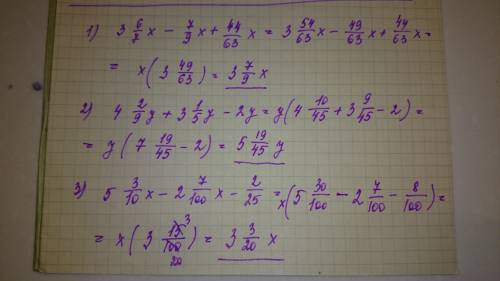 1) 3 6/7 x - 7/9 x + 44/63 x = 3 54/63 x - 49/63 x + 44/63 x =
= x ( 3 49/63 ) = 3 7/9 x
2) 4 2/9 y + 3 1/5 y - 2y = y ( 4 10/45 + 3 9/45 - 2 ) =
= y ( 7 19/45 - 2 ) = 5 19/45 y
3) 5 3/10 x - 2 7/100 x - 2/25 = x ( 5 30/100 - 2 7/100 - 8/100 ) =
= x ( 3 15/100 3 20 ) = 3 3/20 x